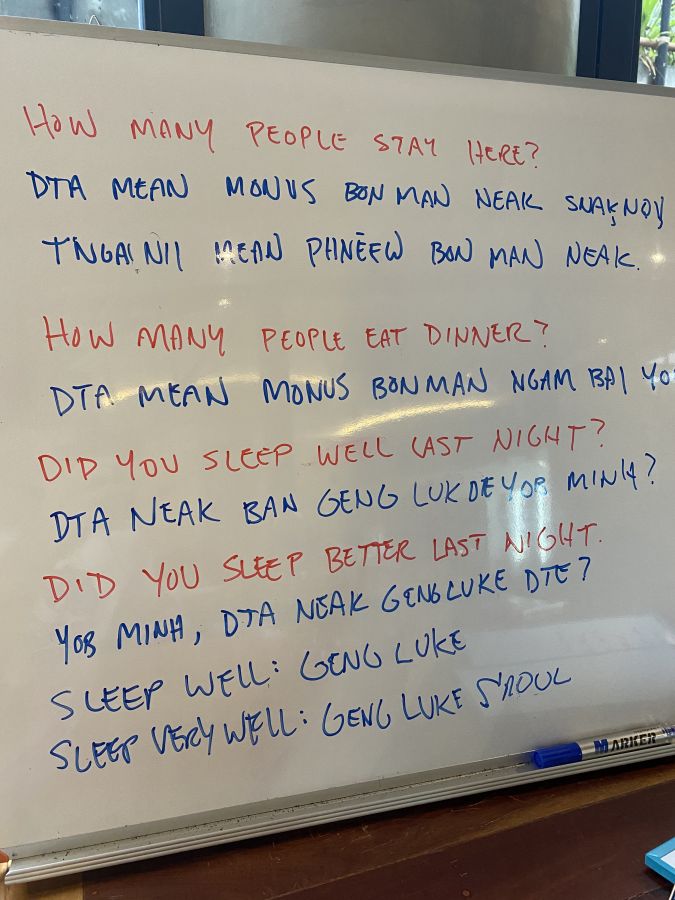 HOW MANY PEOPLE STAY HERE?
DTA MEAN MONUS BON MAN NEAK SNAK NOV
TNGAI NII MEAN PHNEEW BON MAN NEAK.
HOW MANY PEOPLE EAT DINNER?
DTA MEAN MONUS BON MAN NGAM BAI
DID YOU SLEEP WELL LAST NIGHT?
DTA NEAK BAN GENG LUK DE YOB MINH?
DID YOU SLEEP BETTER LAST NIGHT.
YOB MINH, DTA NEAK GENG LUKE DTE?
SLEEP WELL: GENG LUKE
SLEEP VERY WELL: GENG LUKE SROUL
MARKER